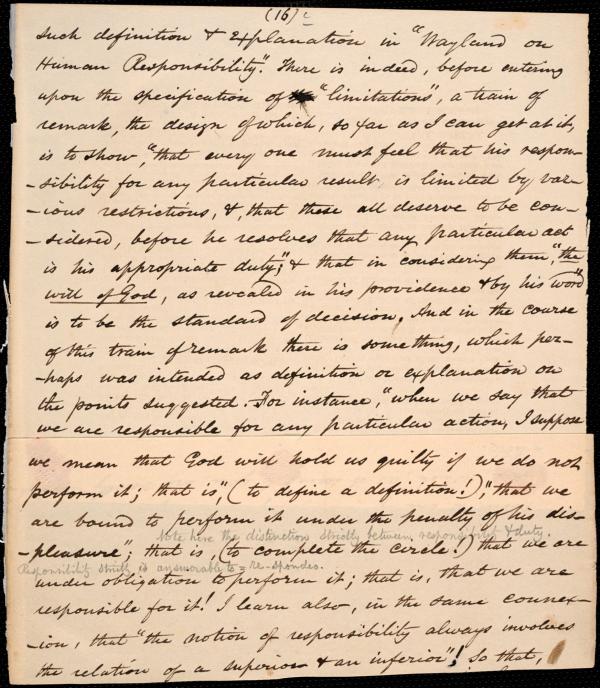 (16)
such definition & explanation in "Wayland on
Human Responsibility". There is indeed, before entering
upon the specification of "limitations", a train of
remark, the design of which, so far as I can get at it,
is to show, "that every one must feel that his respon-
-sibility for any particular result, is limited by var-
-ious restrictions, & that these all deserve to be con-
-sidered, before he resolves that any particular act
is his appropriate duty;" & that in considering them, "the
will of God, as revealed in his providence & by his word"
is to be the standard of decision. And in the course
of this train of remark there is something, which per-
-haps was intended as definition or explanation on
the points suggested. For instance, "when we say that
we are responsible for any particular action, I suppose
we mean that God will hold us guilty if we do not
perform it; that is", (to define a definition!), "that we
are bound to perform it under the penalty of his dis-
Note here the distinction strictly between responsibility & duty.
-pleasure"; that is, (to complete the circle!) that we are
Responsibility strictly is answerable to = re-spondeo.
under obligation to perform it; that is, that we are
responsible for it! I learn also, in the same connex-
-ion, that "the notion of responsibility always involves
the relation of a superior & an inferior"! So that,